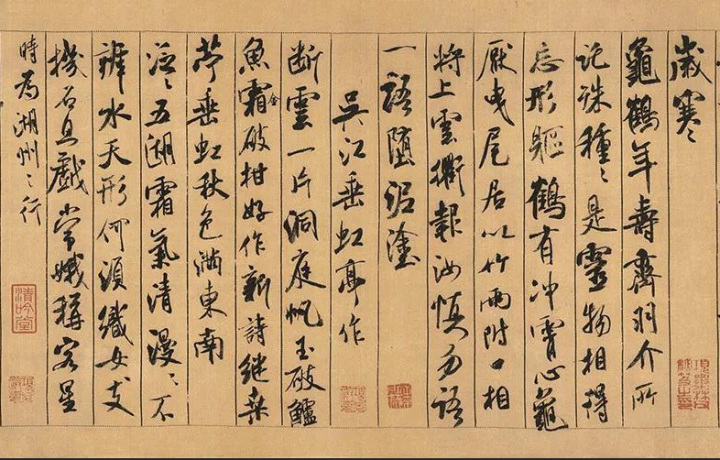 歲寒
龜鶴年壽齊羽介所
託殊種〻是靈物相得
忘形軀鶴有冲霄心龜
厭曳尾居以竹兩附口相
將上雲衢報汝慎勿語
一語墮泥塗
吳江垂虹亭作
断雲一片洞庭帆玉破鱸
魚霜金破柑好作新詩繼桑
苧垂虹秋色滿東南
泛〻五湖霜氣清漫〻不
辨水天形何須織女支
機石且戲常娥稱客星
時為湖州之行
清吟堂